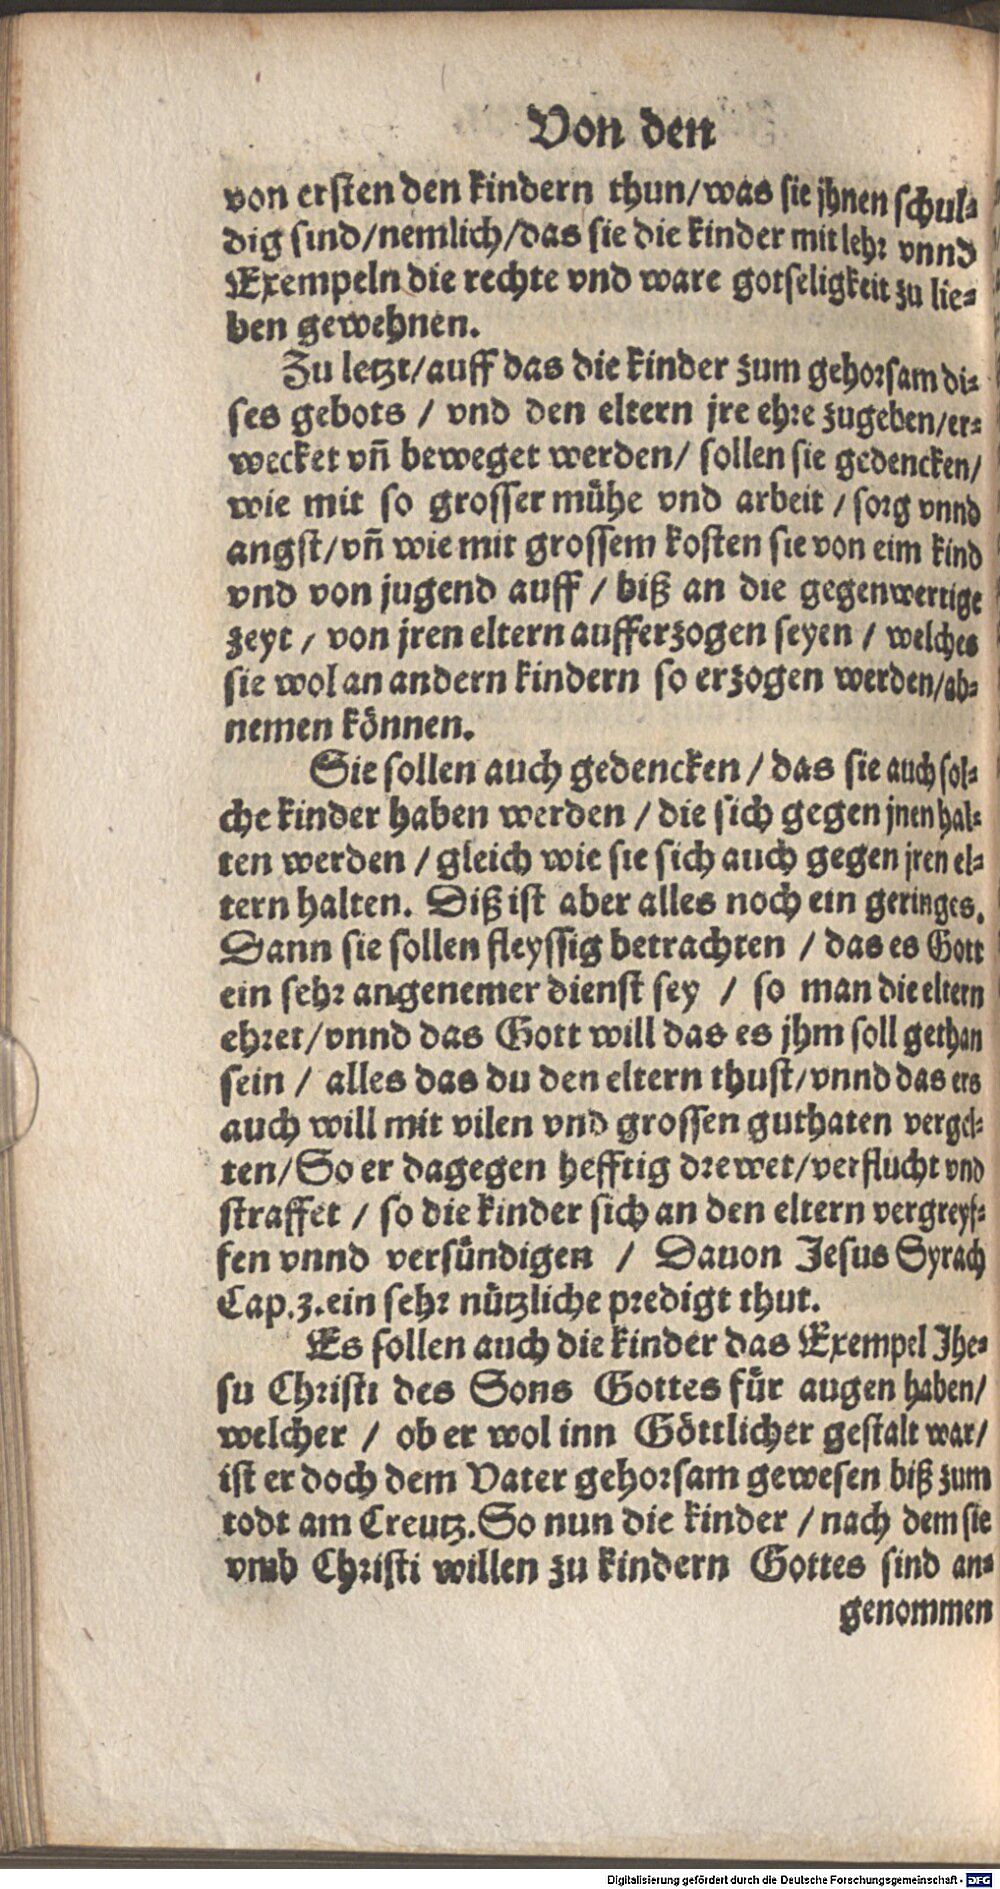 Von den
von ersten den kindern thun/was sie jhnen schul⸗
dig sind/nemlich/das sie die kinder mit lehr vnnd
Exempeln die rechte vnd ware gotseligkeit zu lie⸗
ben gewehnen.
Zu letzt/auff das die kinder zum gehorsam di⸗
ses gebots / vnd den eltern jre ehre zugeben/er⸗
wecket vñ beweget werden/ sollen sie gedencken/
wie mit so grosser mühe vnd arbeit / sorg vnnd
angst/vñ wie mit grossem kosten sie von eim kind
vnd von jugend auff / biß an die gegenwertige
zeyt / von jren eltern aufferzogen seyen / welches
sie wol an andern kindern so erzogen werden/ab⸗
nemen können.
Sie sollen auch gedencken / das sie auch sol⸗
che kinder haben werden / die sich gegen jnen hal⸗
ten werden / gleich wie sie sich auch gegen jren el⸗
tern halten. Diß ist aber alles noch ein geringes.
Dann sie sollen fleyssig betrachten / das es Gott
ein sehr angenemer dienst sey / so man die eltern
ehret/vnnd das Gott will das es jhm soll gethan
sein / alles das du den eltern thust/vnnd das ers
auch will mit vilen vnd grossen guthaten vergel⸗
ten/So er dagegen hefftig drewet/verflucht vnd
straffet / so die kinder sich an den eltern vergreyf⸗
fen vnnd versündigen / Dauon Jesus Syrach
Cap.3.ein sehr nützliche predigt thut.
Es sollen auch die kinder das Exempel Jhe⸗
su Christi des Sons Gottes für augen haben/
welcher / ob er wol inn Göttlicher gestalt war/
ist er doch dem Vater gehorsam gewesen biß zum
todt am Creutz.So nun die kinder / nach dem sie
vmb Christi willen zu kindern Gottes sind an⸗
genommen
Digitalisierung gefördert durch die Deutsche Forschungsgemeinschaft - DFG